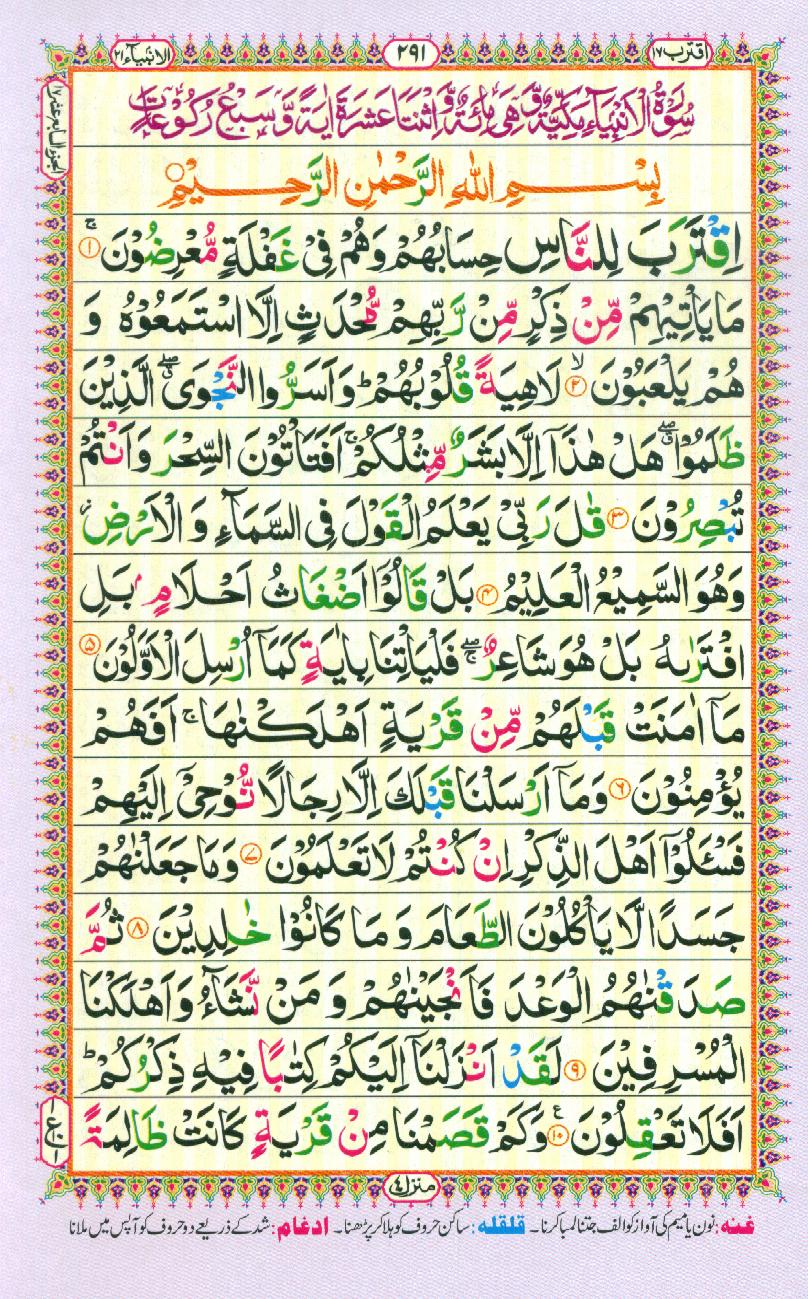 اقترب ١٧
٢٩١
الانبیآء ٢١
سُوْرَةُ الْاَنْۢبِيَآءِ مَكِّيَّةٌ وَّهِيَ مِائَةٌ وَّاثْنَتَا عَشَرَةَ اٰيَةً وَّسَبْعُ رُكُوْعَاتٍ
الجزء السابع عشر ١٧
بِسْمِ اللّٰهِ الرَّحْمٰنِ الرَّحِيْمِ
اِقْتَرَبَ لِلنَّاسِ حِسَابُهُمْ وَهُمْ فِيْ غَفْلَةٍ مُّعْرِضُوْنَ ۚ ﴿١﴾
مَا يَاْتِيْهِمْ مِّنْ ذِكْرٍ مِّنْ رَّبِّهِمْ مُّحْدَثٍ اِلَّا اسْتَمَعُوْهُ وَ
هُمْ يَلْعَبُوْنَ ۙ ﴿٢﴾ لَاهِيَةً قُلُوْبُهُمْ ؕ وَاَسَرُّوا النَّجْوَى ۖ ۗ الَّذِيْنَ
ظَلَمُوْا ۖ ۗ هَلْ هٰذَاۤ اِلَّا بَشَرٌ مِّثْلُكُمْ ۚ اَفَتَاْتُوْنَ السِّحْرَ وَاَنْتُمْ
تُبْصِرُوْنَ ﴿٣﴾ قٰلَ رَبِّيْ يَعْلَمُ الْقَوْلَ فِى السَّمَآءِ وَ الْاَرْضِ ؗ
وَهُوَ السَّمِيْعُ الْعَلِيْمُ ﴿٤﴾ بَلْ قَالُوْۤا اَضْغَاثُ اَحْلَامٍۭ بَلِ
افْتَرٰىهُ بَلْ هُوَ شَاعِرٌ ۖ ۚ فَلْيَاْتِنَا بِاٰيَةٍ كَمَاۤ اُرْسِلَ الْاَوَّلُوْنَ ﴿٥﴾
مَاۤ اٰمَنَتْ قَبْلَهُمْ مِّنْ قَرْيَةٍ اَهْلَكْنٰهَا ۚ اَفَهُمْ
يُؤْمِنُوْنَ ﴿٦﴾ وَمَاۤ اَرْسَلْنَا قَبْلَكَ اِلَّا رِجَالًا نُّوْحِيْۤ اِلَيْهِمْ
فَسْـَٔلُوْۤا اَهْلَ الذِّكْرِ اِنْ كُنْتُمْ لَا تَعْلَمُوْنَ ﴿٧﴾ وَمَا جَعَلْنٰهُمْ
جَسَدًا لَّا يَاْكُلُوْنَ الطَّعَامَ وَ مَا كَانُوْا خٰلِدِيْنَ ﴿٨﴾ ثُمَّ
صَدَقْنٰهُمُ الْوَعْدَ فَاَنْجَيْنٰهُمْ وَ مَنْ نَّشَآءُ وَاَهْلَكْنَا
الْمُسْرِفِيْنَ ﴿٩﴾ لَقَدْ اَنْزَلْنَاۤ اِلَيْكُمْ كِتٰبًا فِيْهِ ذِكْرُكُمْ ؕ
اَفَلَا تَعْقِلُوْنَ ﴿١٠﴾ ع وَكَمْ قَصَمْنَا مِنْ قَرْيَةٍ كَانَتْ ظَالِمَةً
منزل ٤
غنه: نون یا میم کی آواز کو الف جتنا لمبا کرنا۔ قلقله: ساکن حروف کو ہلا کر پڑھنا۔ ادغام: شد کے ذریعے دو حروف کو آپس میں ملانا